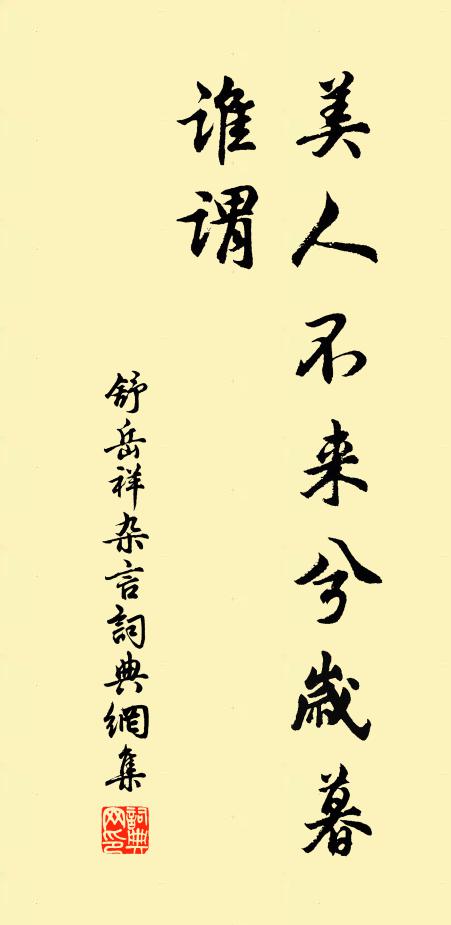 美人不来兮歲暮
誰謂
舒岳祥杂言詞典網集
詞典网印